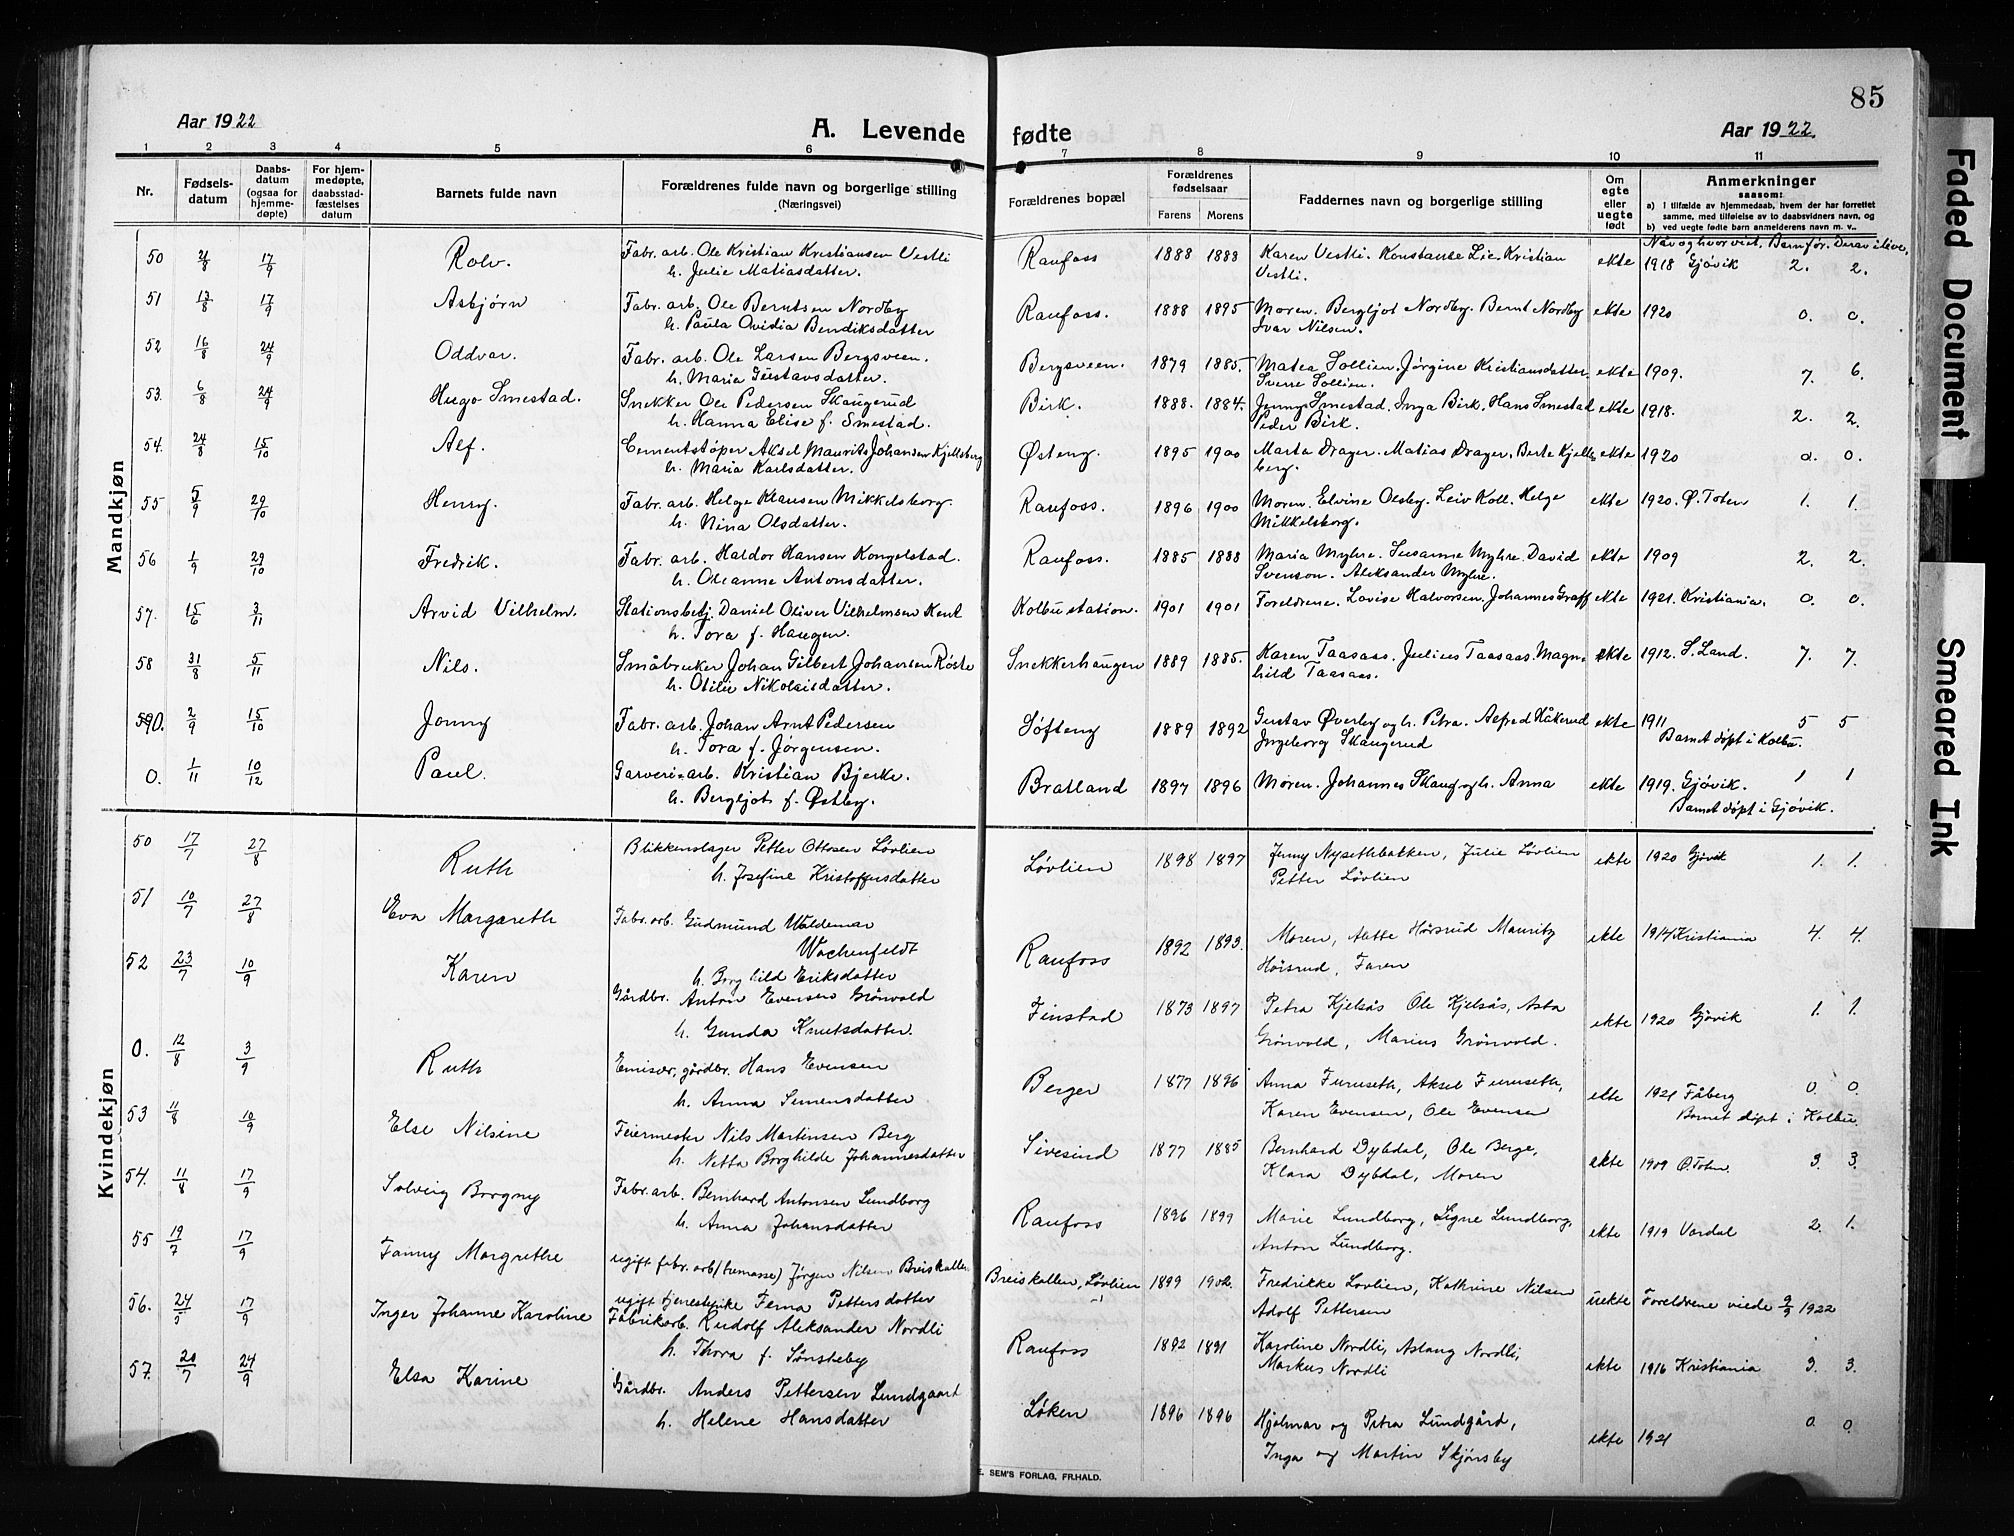 85
Aar 1922
A. Levende fødte
Aar 1922.
1 2 3 4 5 6 7 8 9 10 11
Nr.
Fødsels-
datum
Daabs-
datum
(ogsaa for
hjemme-
døpte)
For hjem-
medøpte,
daabsstad-
fæstelses
datum
Barnets fulde navn
Forældrenes fulde navn og borgerlige stilling
(Næringsvei)
Forældrenes bopæl
Forældrenes
fødselsaar
Farens Morens
Faddernes navn og borgerlige stilling
Om
egte
eller
uegte
født
Anmerkninger
saasom:
a) I tilfælde av hjemmedaab, hvem der har forrettet
samme, med tilføielse av to daabsvidners navn, og
b) ved uegte fødte barn anmelderens navn m. v.
Når og hvor viet. Barn før. Derav i live.
Mandkjøn
50 2/8 17/9 Rolv. Fabr. arb. Ole Kristian Kristiansen Vestli Raufoss 1888 1888 Karen Vestli. Konstanse Lie. Kristian ekte 1918 Gjøvik 2. 2.
h. Julie Matiasdatter. Vestli.
51 13/8 17/9 Asbjørn Fabr. arb. Ole Berntsen Nordby Raufoss. 1888 1895 Moren. Bergljot Nordby. Bernt Nordby ekte 1920 0. 0.
h. Paula Ovidia Bendiksdatter Ivar Nilsen.
52 16/8 24/9 Oddvar. Fabr. arb. Ole Larsen Bergsveen. Bergsveen. 1879 1885. Matea Sollien. Jørgine Kristiansdatter. ekte 1909. 7. 6.
h. Maria Gustavsdatter. Sverre Sollien.
53. 6/8 24/9 Hugo Smestad. Snekker Ole Pedersen Skaugerud Birk. 1888. 1884. Jenny Smestad. Inga Birk. Hans Smestad ekte 1918. 2. 2.
h. Hanna Elise f. Smestad. Peder Birk.
54. 24/8 15/10 Alf. Cementstøper Aksel Maurits Johansen Kjellsberg Østeng. 1895 1900 Marta Drager. Matias Drager. Berte Kjells ekte 1920 0. 0.
h. Maria Karlsdatter. berg.
55 5/9 29/10 Henry. Fabr. arb. Helge Klausen Mikkelsborg. Raufoss. 1896 1900 Moren. Elvine Olsby. Leiv Koll. Helge ekte 1920. Ø. Toten 1. 1.
h. Nina Olsdatter. Mikkelsborg.
56 1/9 29/10 Fredrik. Fabr. arb. Haldor Hansen Kongelstad. Raufoss. 1885 1888 Maria Myhre. Susanne Myhre. David ekte 1909 2. 2.
h. Oleanne Antonsdatter. Svenson. Aleksander Myhre.
57. 15/6 3/11 Arvid Vilhelm. Stationsbetj. Daniel Oliver Vilhelmsen Kent Kolbu station. 1901 1901 Foreldrene. Lovise Halvorsen. Johannes Graff ekte 1921. Kristiania. 0. 0.
h. Tora f. Haugen.
58 31/8 5/11 Nils. Småbruker Johan Gilbert Johansen Røste Snekkerhaugen 1889 1885. Karen Taasaas. Julius Taasaas. Magn- ekte 1912. S. Land. 7. 7.
h. Otilie Nikolaisdatter. hild Taasaas.
590. 2/9 15/10 Jonny Fabr. arb. Johan Arnt Pedersen Søfteng 1889 1892 Gustav Øverby og h. Petra. Alfred Håkerud ekte 1911 5 5
h. Tora f. Jørgensen. Ingeborg Skaugerud Barnet døpt i Kolbu.
0. 1/11 10/12 Paul. Garveri-arb. Kristian Bjerke. Bratland 1897 1896 Moren. Johannes Skaug og h. Anna ekte 1919. Gjøvik. 1 1
h. Bergljot f. Østby. Barnet døpt i Gjøvik.
Kvindekjøn
50 17/7 27/8 Ruth Blikkenslager Petter Ottosen Løvlien Løvlien 1898 1897 Jenny Nysethbakken, Julie Løvlien ekte 1920 Gjøvik 1. 1.
h. Josefine Kristoffersdatter Petter Løvlien
51 10/7 27/8 Eva Margareth Fabr. arb. Gudmund Waldemar
Wachenfeldt Raufoss 1892 1893. Moren, Alette Hørsrud Mauritz ekte 1914 Kristiania 4. 4.
h. Borghild Eriksdatter Hørsrud, Faren
52 23/7 10/9 Karen Gårdbr. Anton Evensen Grønvold Finstad 1873 1897 Petra Kjelsås Ole Kjelsås, Asta ekte 1920 Gjøvik 1. 1.
h. Gunda Knutsdatter. Grønvold, Marius Grønvold.
0. 12/8 3/9 Ruth Emisær, gårdbr. Hans Evensen Berger 1877 1896 Anna Furuseth, Aksel Furuseth, ekte 1921 Fåberg 0. 0.
h. Anna Simensdatter Karen Evensen, Ole Evensen Barnet døpt i Kolbu.
53 11/8 10/9 Else Nilsine Feiermester Nils Martinsen Berg Sivesind 1877 1885 Bernhard Dybdal, Ole Berge, ekte 1909 Ø. Toten 3. 3.
h. Netta Borghilde Johannesdatter Klara Dybdal, Moren
54. 11/8 17/9 Solveig Borgny Fabr. arb. Bernhard Antonsen Lundborg Raufoss 1896 1899 Marie Lundborg, Signe Lundborg, ekte 1919 Vardal 2. 1.
h. Anna Johansdatter Anton Lundborg.
55 19/7 17/9 Fanny Margrethe ugift fabr. arb (tremasse) Jørgen Nilsen Breiskallen Breiskallen, Løvlien 1899 1902. Fredrikke Lovlien, Kathrine Nilsen uekte Foreldrene viede 9/9 1922
ugift tjenestepike Ferna Pettersdatter Adolf Pettersen
56. 17/9 Inger Johanne Karoline Fabrikarb. Rudolf Aleksander Nordli Raufoss 1892 1891 Karoline Nordli, Aslaug Nordli, ekte 1916 Kristiania 3. 3.
h. Thora f. Sønsteby Markus Nordli
57. 20/7 24/9 Elsa Karine Gårdbr. Anders Pettersen Lundgaard Løken 1896 1896 Hjalmar og Petra Lundgård, ekte 1921 0. 0.
h. Helene Hansdatter Inga og Martin Skjønsby
E. SEM'S FORLAG, FR.HALD.
Faded Document
Smeared Ink